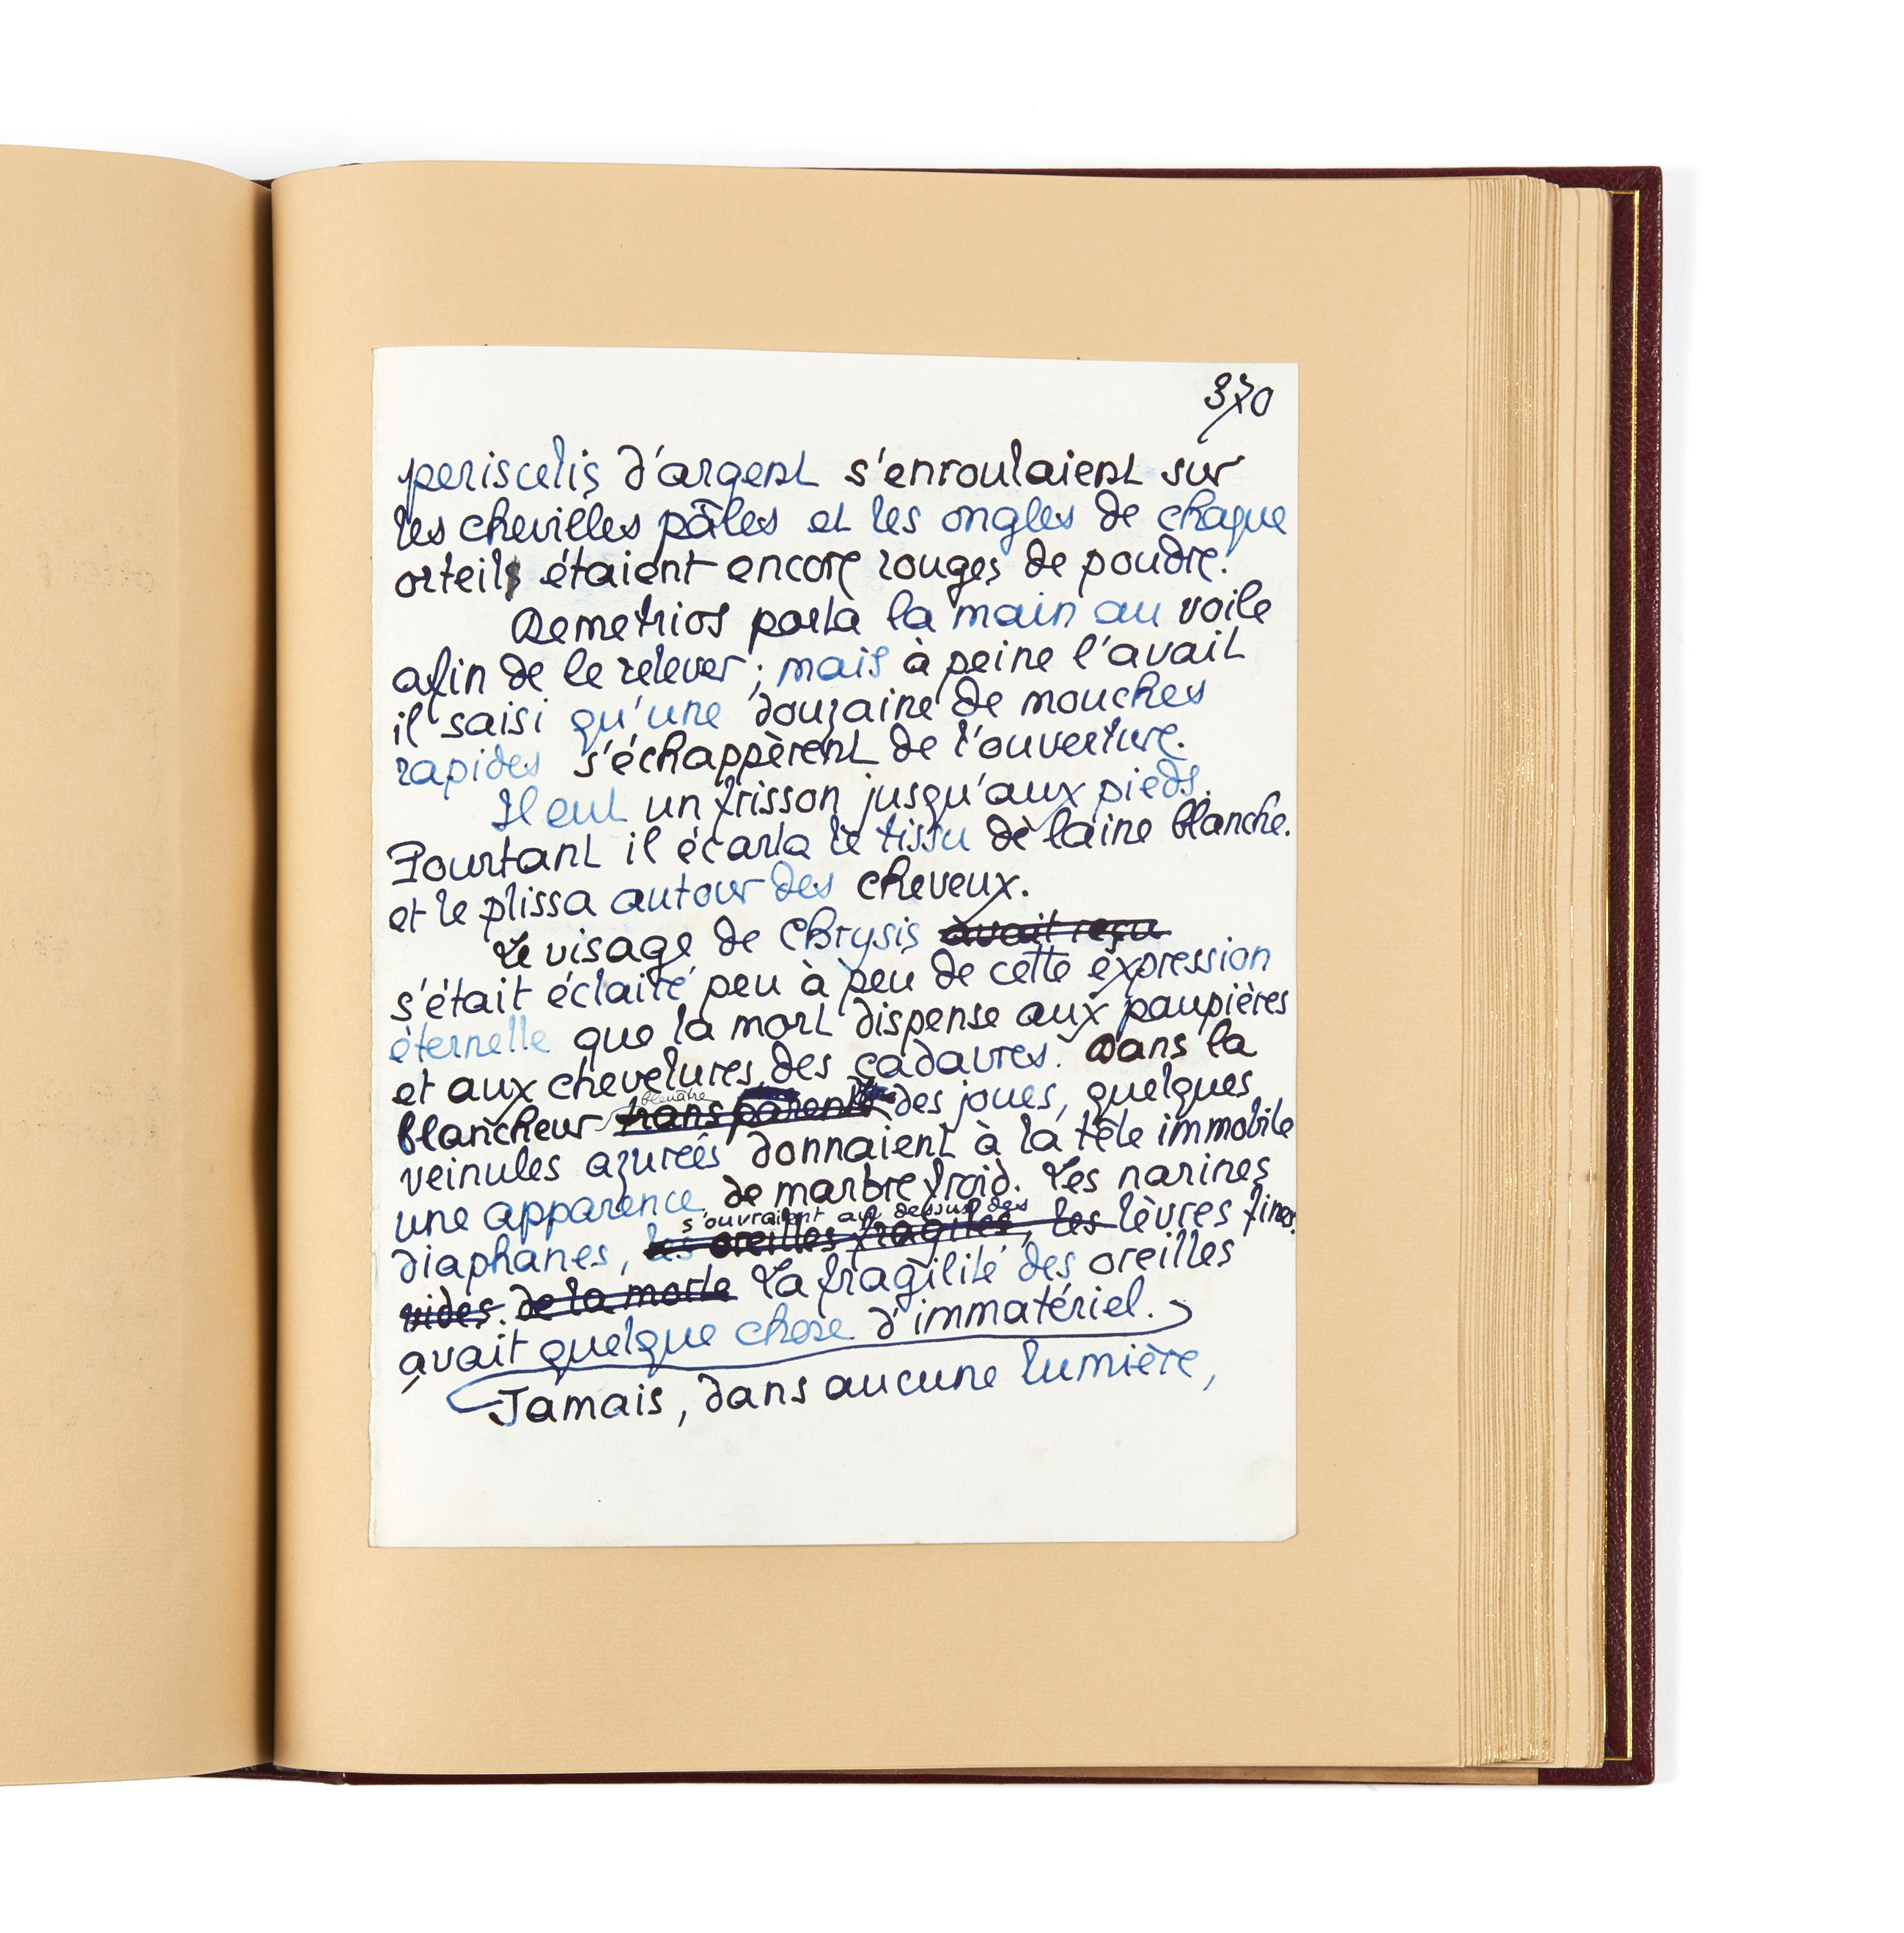 370
periscelis d'argent s'enroulaient sur
les chevilles pâles et les ongles de chaque
orteil étaient encore rouges de poudre.
Demetrios porta la main au voile
afin de le relever ; mais à peine l'avait
il saisi qu'une douzaine de mouches
rapides s'échappèrent de l'ouverture.
Il eut un frisson jusqu'aux pieds.
Pourtant il écarta le tissu de laine blanche.
et le plissa autour des cheveux.
Le visage de Chrysis avait reçu
s'était éclairé peu à peu de cette expression
éternelle que la mort dispense aux paupières
et aux chevelures des cadavres. Dans la
bleuâtre
blancheur transparente des joues, quelques
veinules azurées donnaient à la tête immobile
une apparence de marbre froid. Les narines
s'ouvraient au dessus des
diaphanes, les oreilles fragiles, les lèvres fines.
vides. de la morte La fragilité des oreilles
avait quelque chose d'immatériel.
Jamais, dans aucune lumière,